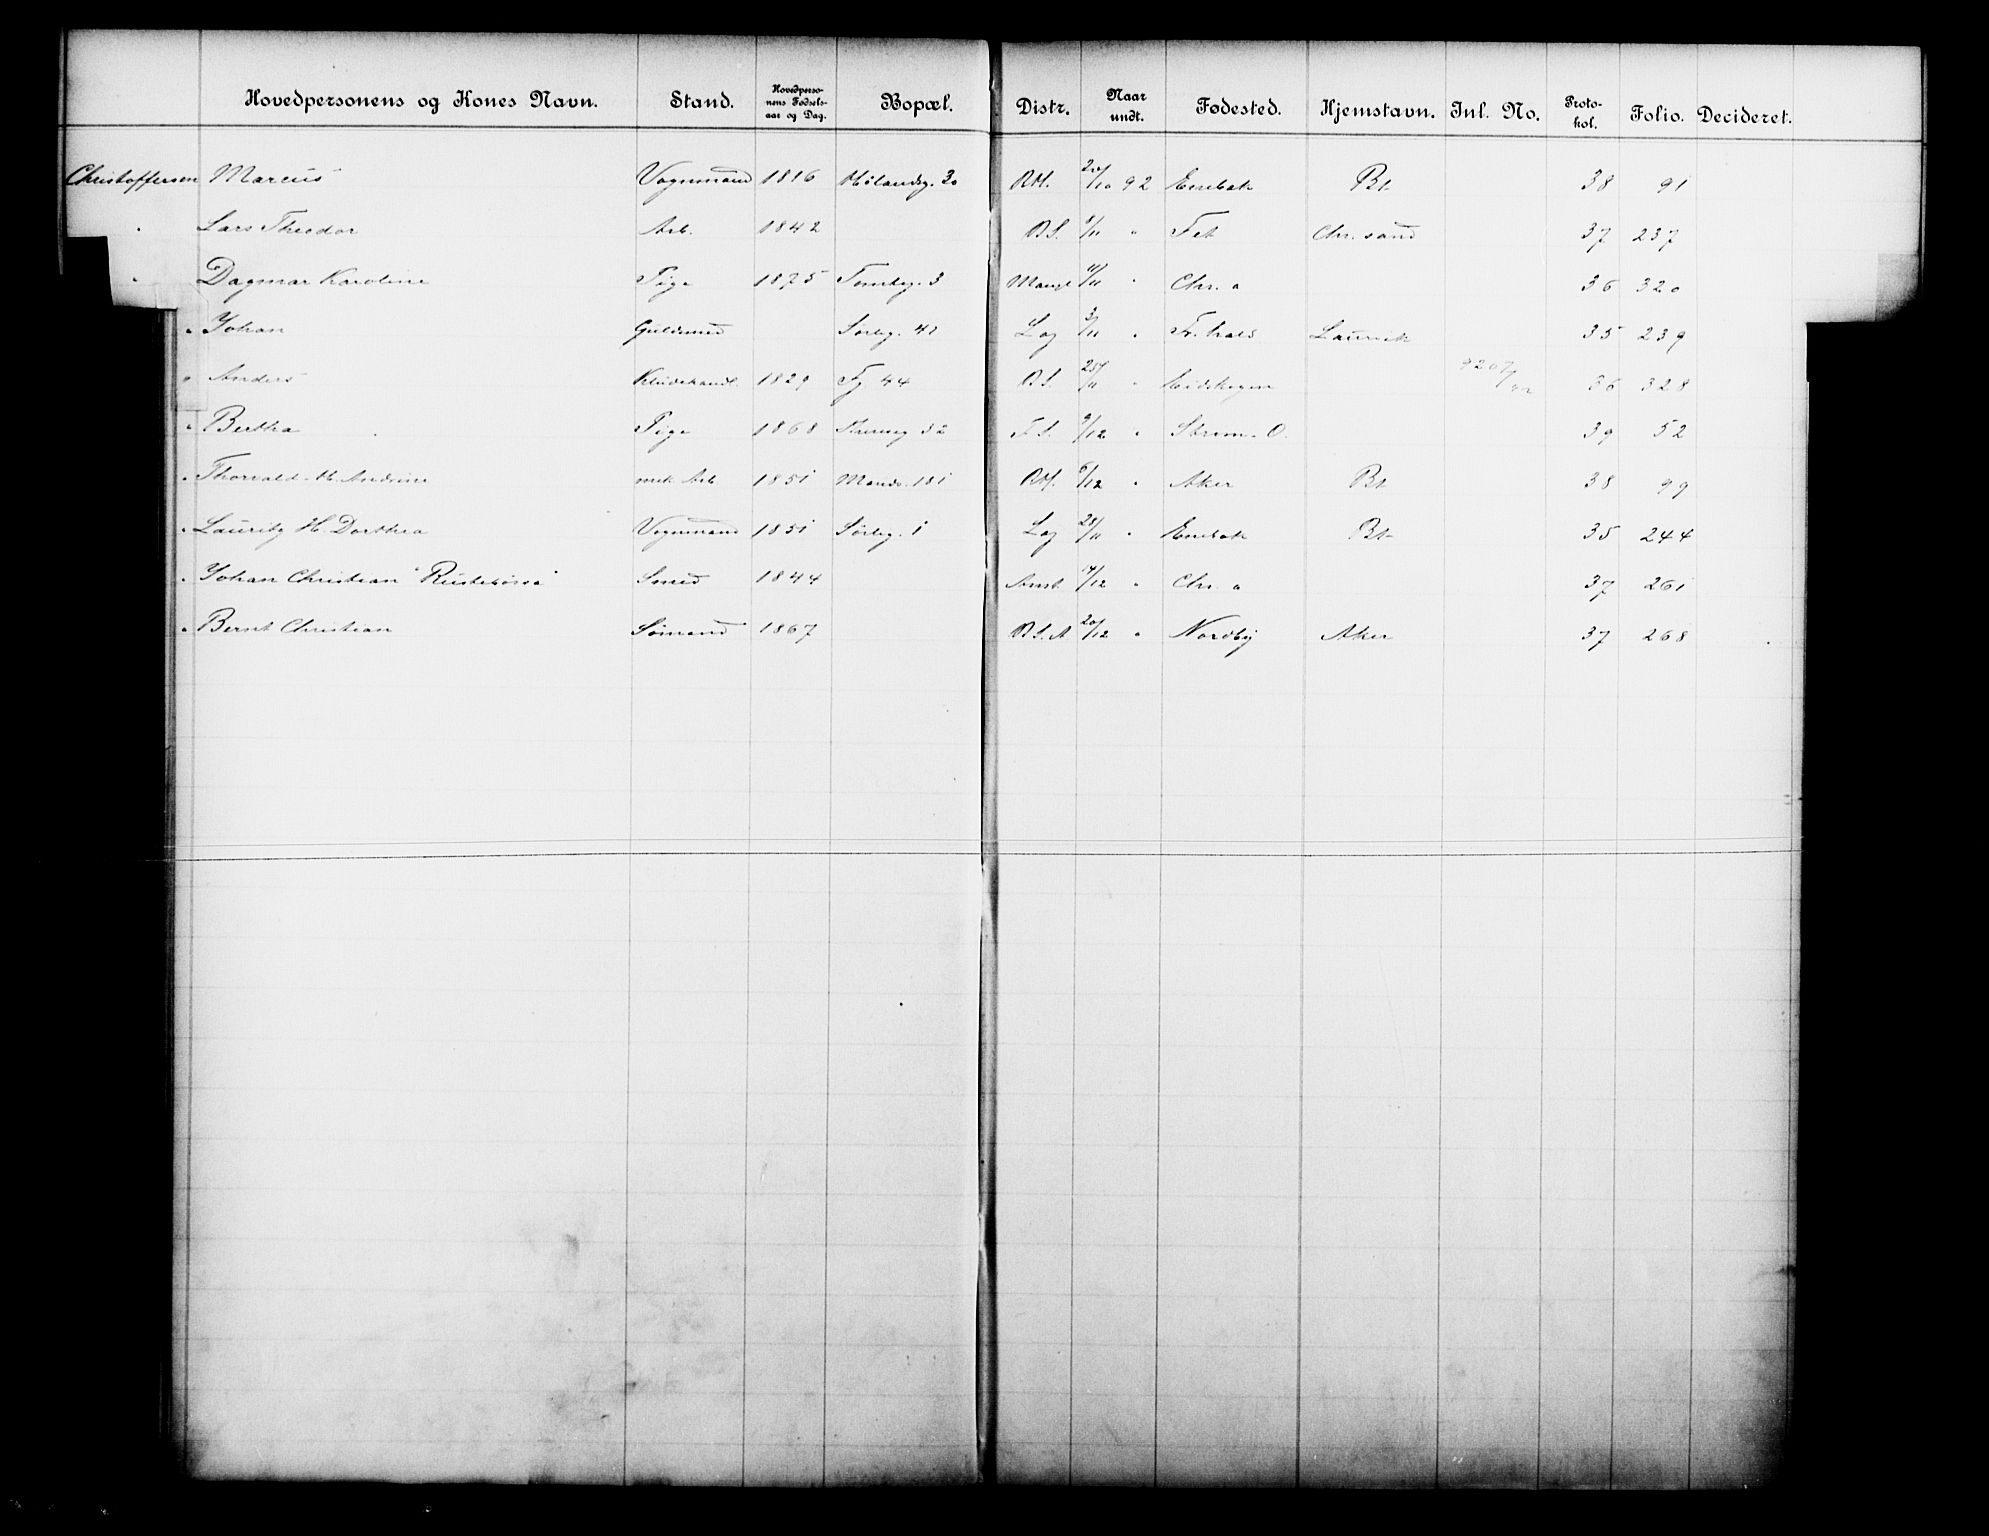 Hovedpersonens og Kones Navn. Stand. Hovedpersonens Fødselsaar og Dag. Bopæl. Distr. Naar undt. Fødested. Hjemstavn. Inl. No. Protokol. Folio. Decideret.
Christoffersen Marcus Vognmand 1816 Hølandsg. 30 20/10 92 Enebak Bt 38 91
" Lars Theodor Arb. 1842 B.S. 1/11 " Fet Chr. sand 37 237
" Dagmar Karoline Pige 1875 3 11/11 " Chr. a 36 320
" Johan Guldsmed Sørlig. 41 Lag 3/11 " Fr. hald Laurvik 35 239
" Anders Kludehandl. 1829 44 B.S. 25/11 " Eidskogen 9207/92 36 328
" Bertha Pige 1868 32 F.S. 9/12 " Strøm. O. 39 52
" Thorvald H. Andrine mek Arb 1851 181 6/12 " Aker Bt 38 99
" Lauritz H. Dorthea Vognmand 1851 Sørlig. 1 Lag 28/11 " Enebak Bt 35 244
" Johan Christian "Rustebössa" Smed 1844 14/12 " Chr. a 37 261
" Bernt Christian Sømand 1867 B.S.A 20/12 " Nordby Aker 37 268